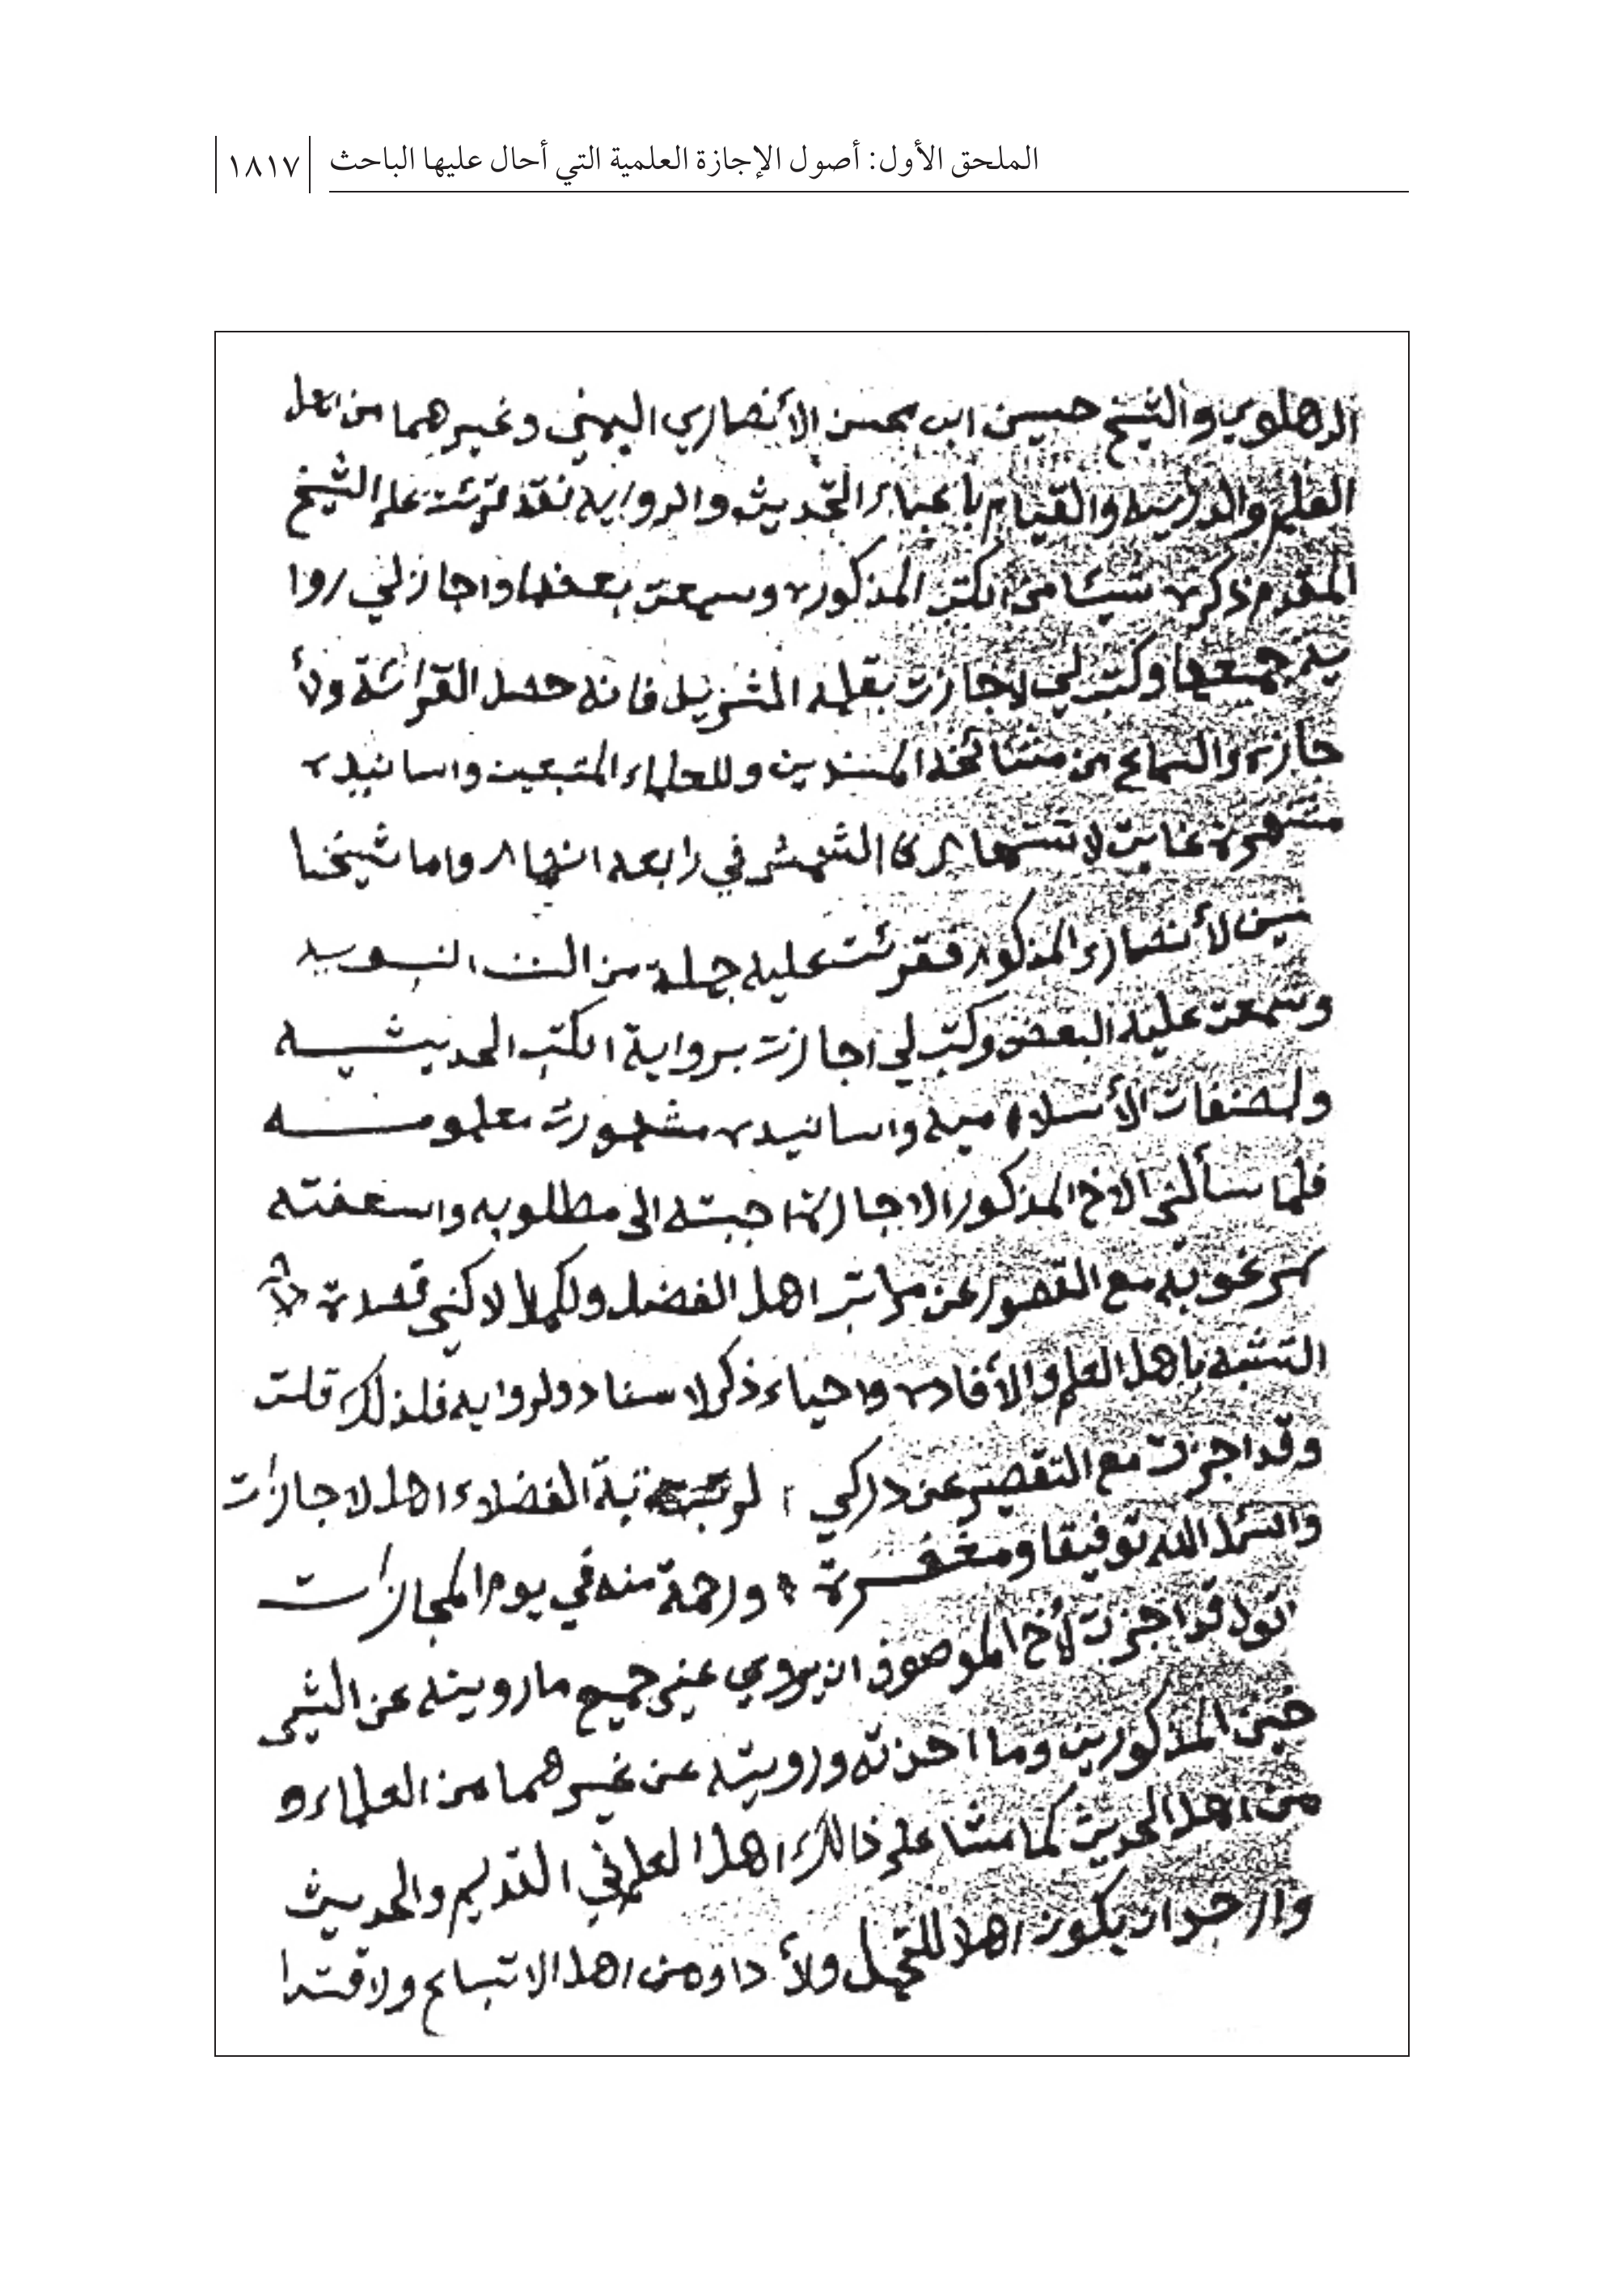 الملحق الأول: أصول الإجازة العلمية التي أحال عليها الباحث
١٨١٧
الدهلوي والشيخ حسين ابن محسن الأنصاري اليمني وغيرهما من اهل
العلم والدراسه والقيام باعباء التحديث والروايه فقد قرئت على الشيخ
المقدم ذكره شيئا من الكتب المذكوره وسمعت بعضها واجازلي روا
يته جميعها وكتب لي لاجازت بقلمه الشريف فانه حصل القرائة ولأ
جازه والسماع من مشائخه المسندين وللعلماء المتبعين واسانيده
مشتهرة غايت لاشتهار كا الشمس في رابعه النهار واما شيخنا
حسين لأنصاري المذكور فقرئت عليه جملة من السنن النبويه
وسمعت عليه البعض وكتب لي اجازت برواية الكتب الحديثيه
ولمصنفات الأسلاميه واسانيده مشهورت معلومه
فلما سألني الاخ المذكور الاجازة اجبته الى مطلوبه واسعفته
مرغوبه مع القصور عن مراتب اهل الفضل ولكمال لاكني قصدت
التشبه باهل العلم والأفاده واحياء ذكر لاسناد ولروايه فلذلك قلت
وقد اجزت مع التقصير عن دركي لرتبة الفضلاء اهل لاجازات
واسئل الله توفيقا ومغفرة ورحمة منه في يوم المجازات
اقول قد اجزت لأخ الموصوف ان يروي عني جميع مارويته عن الشي
خين المذكورين وما اخذته ورويته عن غيرهما من العلماء و
من اهل الحديث كما مشا على ذالك اهل العلم في القديم والحديث
وارجوا ان يكون اهلا للتحمل ولأداء ومن اهل الاتباع ولاقتدا